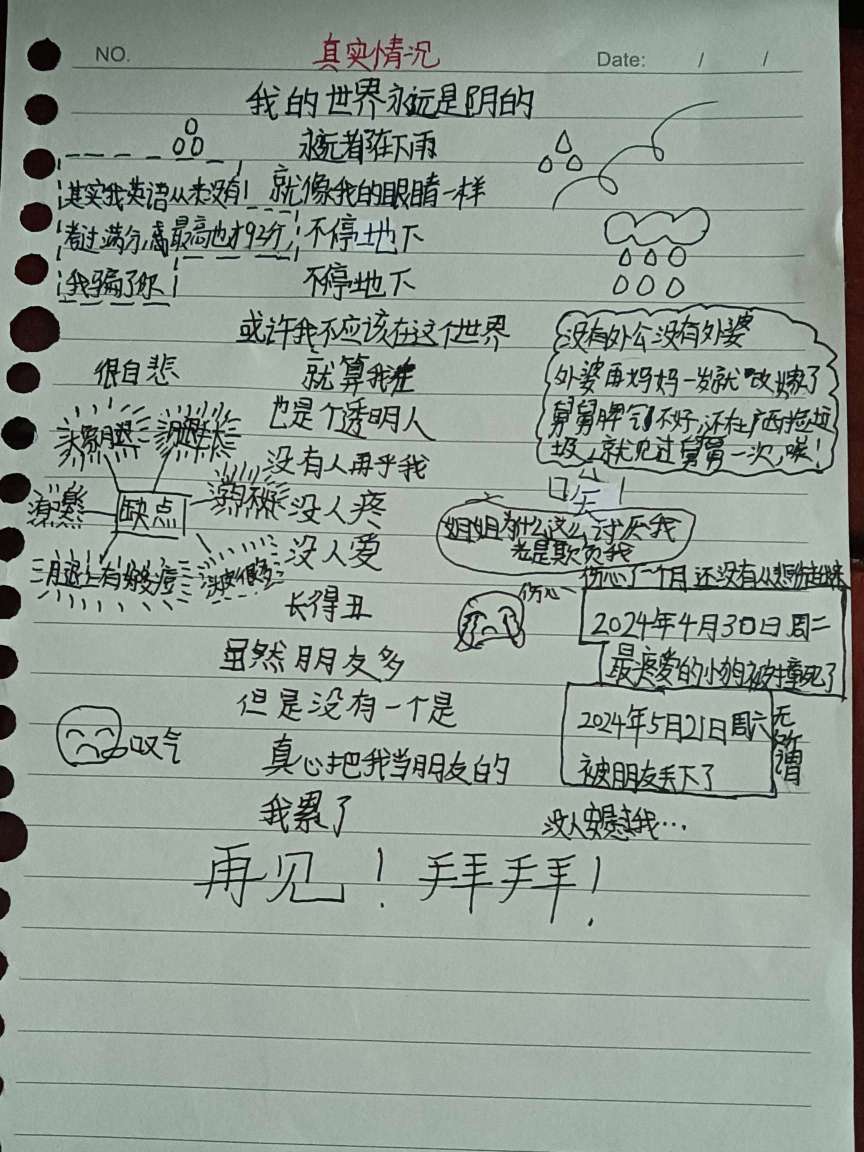 NO.
真实情况
Date: / /
我的世界永远是阴的
永远都在下雨
其实我英语从来没有
考过满分,最高也才92分,
我骗了你
就像我的眼睛一样
不停地下
不停地下
或许我不应该在这个世界
就算我在
也是个透明人
没有人再乎我
没人疼
没人爱
长得丑
虽然朋友多
但是没有一个是
真心把我当朋友的
我累了
再见!拜拜!
很自悲
缺点
没有外公没有外婆
外婆再妈妈一岁就改嫁了
舅舅脾气不好,还在广西捡垃
圾,就见过舅舅一次,唉!
姐姐为什么这么讨厌我
老是欺负我
伤心
伤心了一个月还没有从悲伤起来
2024年4月30日周二
最疼爱的小狗被撞死了
2024年5月21日周六
被朋友丢下了
无所谓
叹气
没人安慰我…